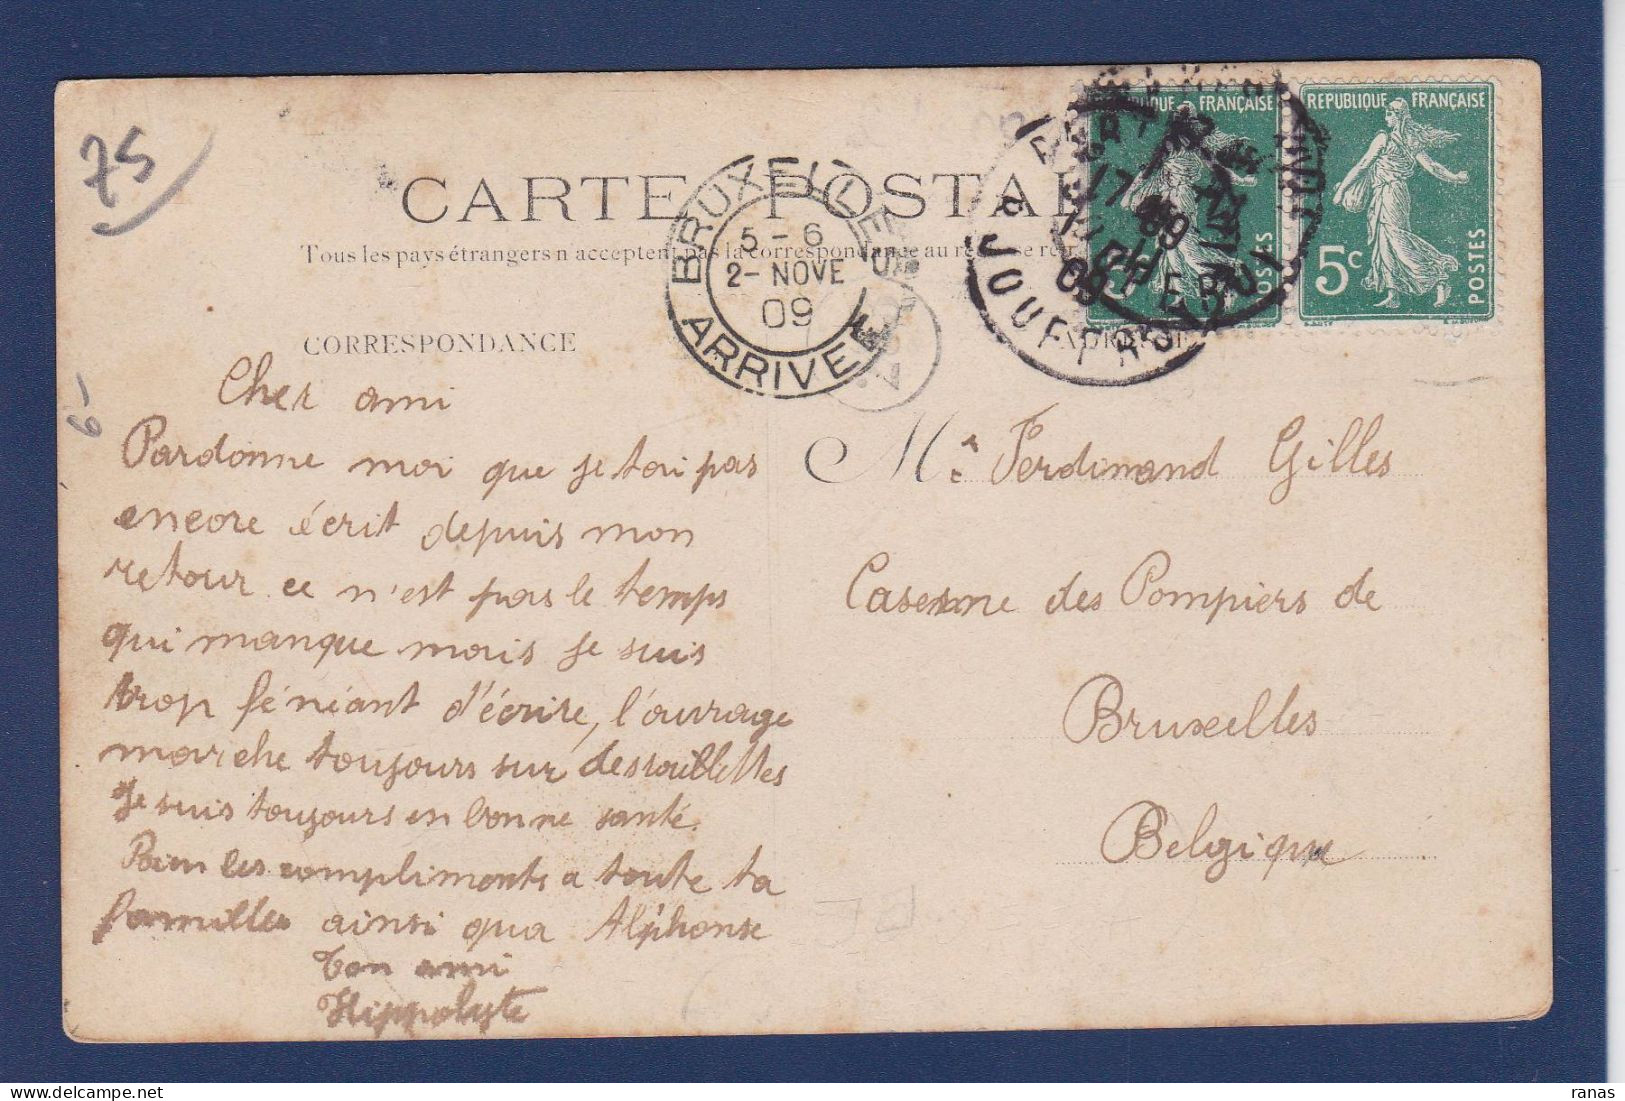 75
6-
CARTE POSTAL
Tous les pays étrangers n'acceptent pas la correspondance au
CORRESPONDANCE
BRUXELLES
5-6
2- NOVE
09
ARRIVEE
REPUBLIQUE FRANÇAISE
5c
POSTES
R. JOUFFROY
Cher ami
Pardonne moi que je tai pas
encore écrit depuis mon
retour ce n'est pas le temps
qui manque mais je suis
trop féniant d'écrire, l'ouvrage
marche toujours sur des roulletes
Je suis toujours en bonne santé.
Bien les compliments a toute ta
famille ainsi qua Alphonse
Ton ami
Hippolyte
Mr. Ferdinand Gilles
Caserne des Pompiers de
Bruxelles
Belgique
ranas